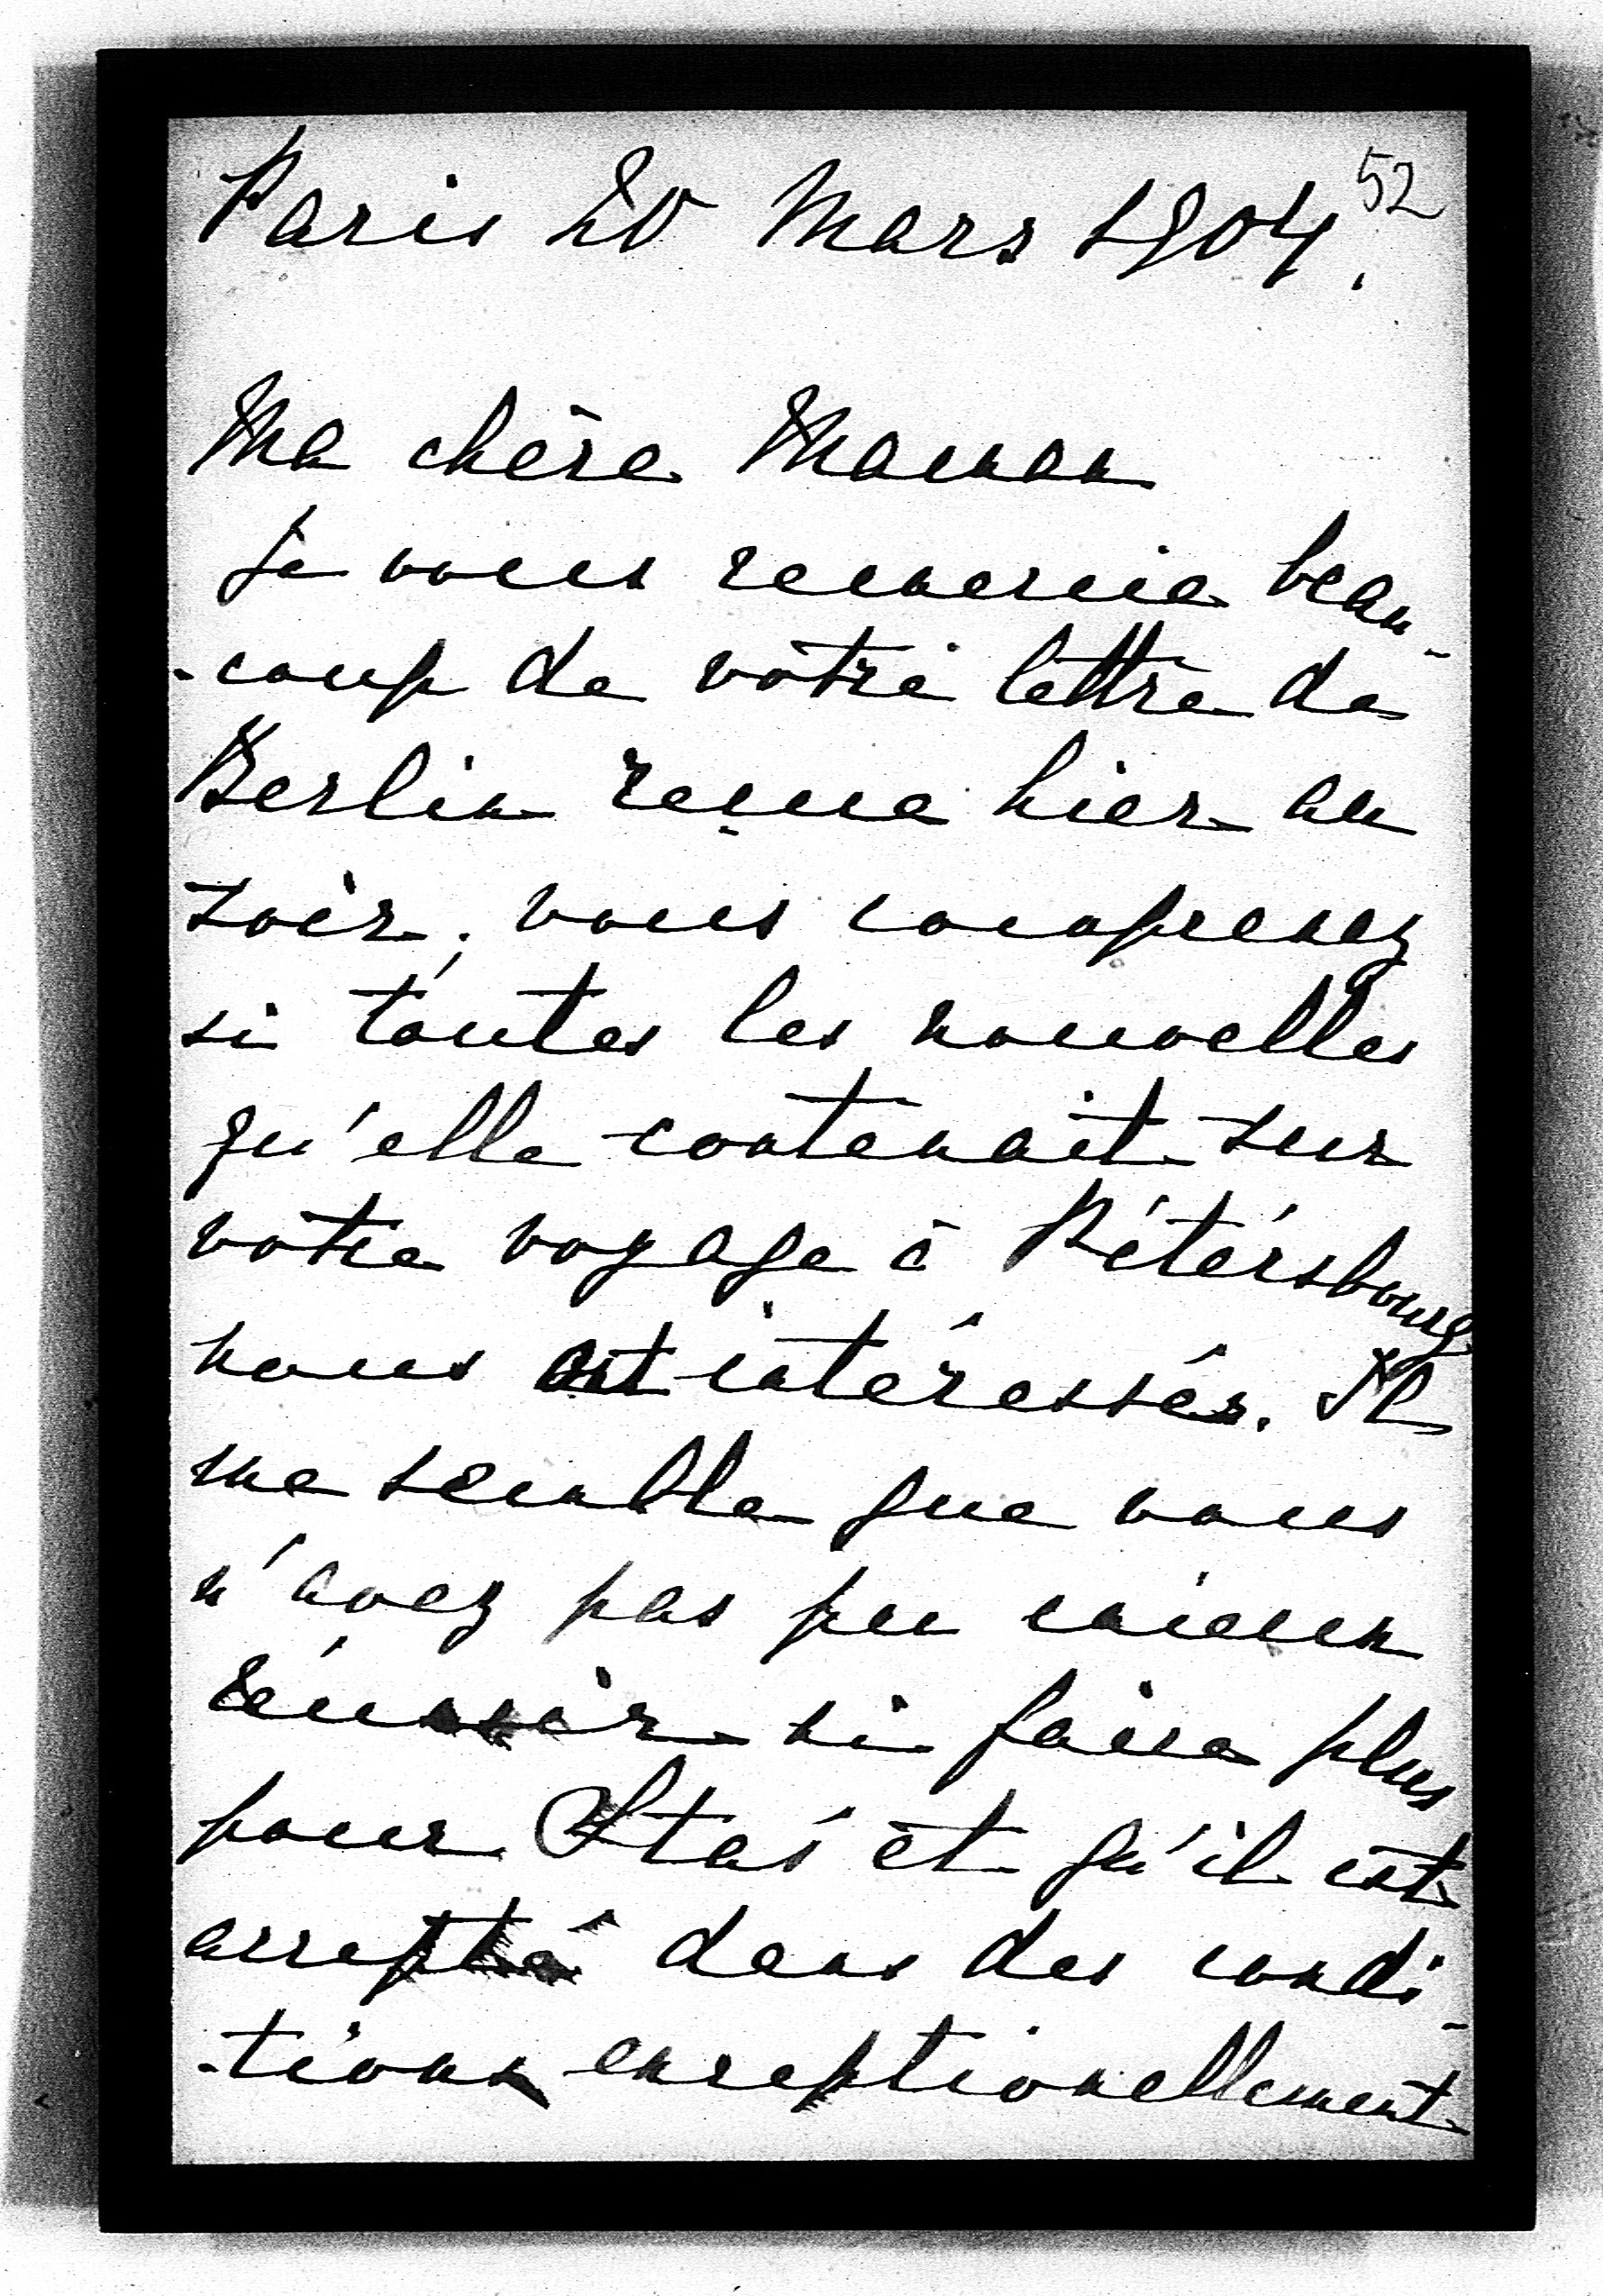 52
Paris 20 Mars 1904.
Ma chère Maman
Je vous remercie beau-
-coup de votre lettre de
Berlin reçue hier au
soir; vous comprenez
si toutes les nouvelles
qu'elle contenait sur
votre voyage à Pétérsbourg
nous ont intéressés. Il
me semble que vous
n'avez pas pu mieux
réussir ni faire plus
pour Staś et qu'il est
accepté dans des condi-
-tions exceptionellement